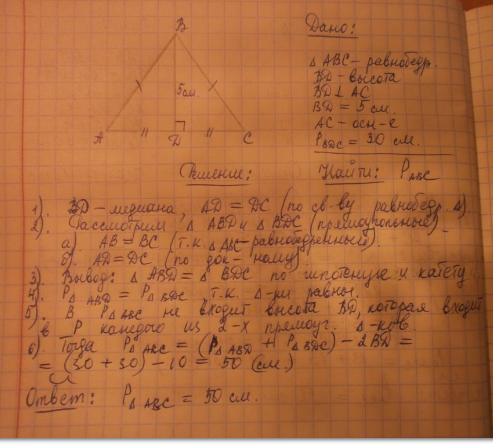 B
Дано:
Δ ABC - равнобедр.
BD - высота
5 см.
BD ⊥ AC
BD = 5 см.
AC - осн-е
A D C
P BDC = 30 см.
Решение:
Найти: P ABC
1). BD - медиана, AD = DC (по св-ву равнобедр. Δ).
2). Рассмотрим Δ ABD и Δ BDC (прямоугольные).
а). AB = BC (т.к. Δ ABC - равнобедренный).
б). AD = DC (по док-ному)
3). Вывод: Δ ABD = Δ BDC по гипотенузе и катету.
4). P Δ ABD = P Δ BDC т.к. Δ-ки равны.
5). В P Δ ABC не входит высота BD, которая входит
в P каждого из 2-х прямоуг. Δ-ков.
6). Тогда P Δ ABC = (P Δ ABD + P Δ BDC) - 2BD =
= (30 + 30) - 10 = 50 (см.)
Ответ: P Δ ABC = 50 см.